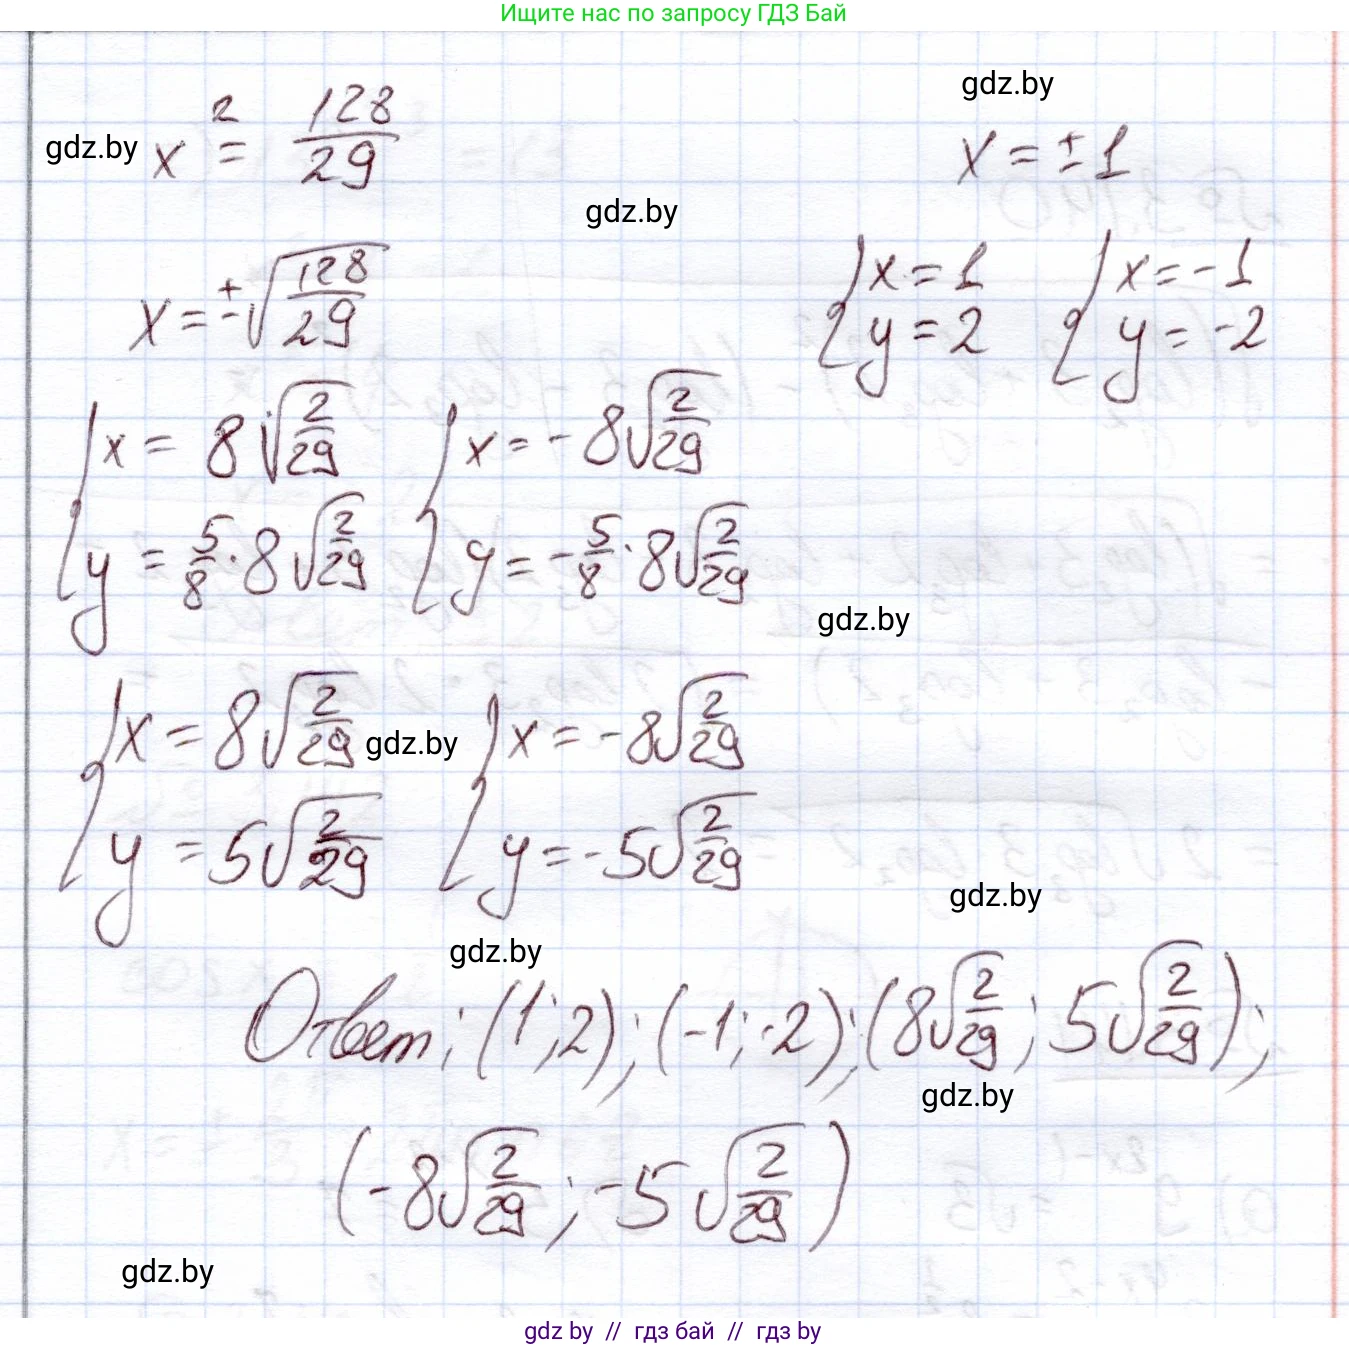 Ищите нас по запросу ГДЗ Бай
gdz.by
x² = 128/29
x = ±1
gdz.by
gdz.by
x = ±√(128/29)
{x = 1 {x = -1
{y = 2 {y = -2
{x = 8√(2/29) {x = -8√(2/29)
{y = 5/8 · 8√(2/29) {y = -5/8 · 8√(2/29)
gdz.by
{x = 8√(2/29) {x = -8√(2/29)
gdz.by
{y = 5√(2/29) {y = -5√(2/29)
gdz.by
gdz.by
Ответ: (1; 2); (-1; -2); (8√(2/29); 5√(2/29));
gdz.by
(-8√(2/29); -5√(2/29))
gdz.by
gdz by // гдз бай // гдз by